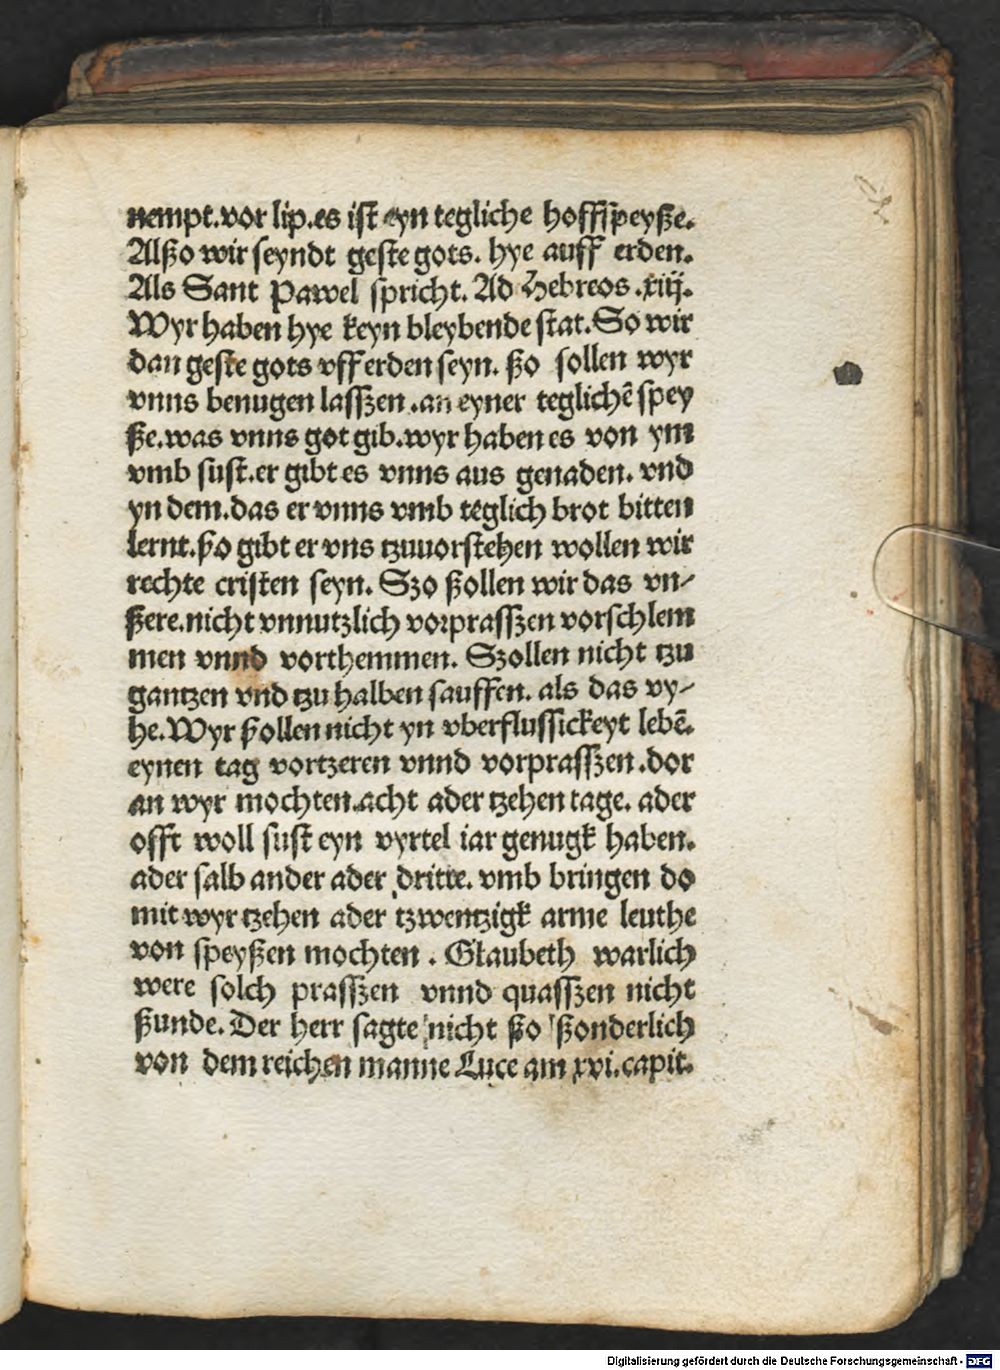 nempt.vor lip.es ist eyn tegliche hoffspeyße.
Alßo wir seyndt geste gots. hye auff erden.
Als Sant Pawel spricht. Ad Hebreos .xiij.
Wyr haben hye keyn bleybende stat. So wir
dan geste gots vff erden seyn. ßo sollen wyr
vnns benugen lasszen .an eyner teglichē spey
ße.was vnns got gib.wyr haben es von ym
vmb sust.er gibt es vnns aus genaden. vnd
yn dem.das er vnns vmb teglich brot bitten
lernt.ßo gibt er vns tzuuorstehen wollen wir
rechte cristen seyn. Szo ßollen wir das vn-
ßere.nicht vnnutzlich vorprasszen vorschlem
men vnnd vorthemmen. Szollen nicht tzu
gantzen vnd tzu halben sauffen. als das vy-
he. Wyr ßollen nicht yn vberflussickeyt lebē.
eynen tag vortzeren vnnd vorprasszen .dor
an wyr mochten.acht ader tzehen tage. ader
offt woll sust eyn vyrtel iar genugk haben.
ader salb ander ader dritte. vmb bringen do
mit wyr tzehen ader tzwentzigk arme leuthe
von speyßen mochten . Glaubeth warlich
were solch prasszen vnnd quasszen nicht
ßunde. Der herr sagte nicht ßo ßonderlich
von dem reichen manne Luce am xvi.capit.
Digitalisierung gefördert durch die Deutsche Forschungsgemeinschaft - DFG